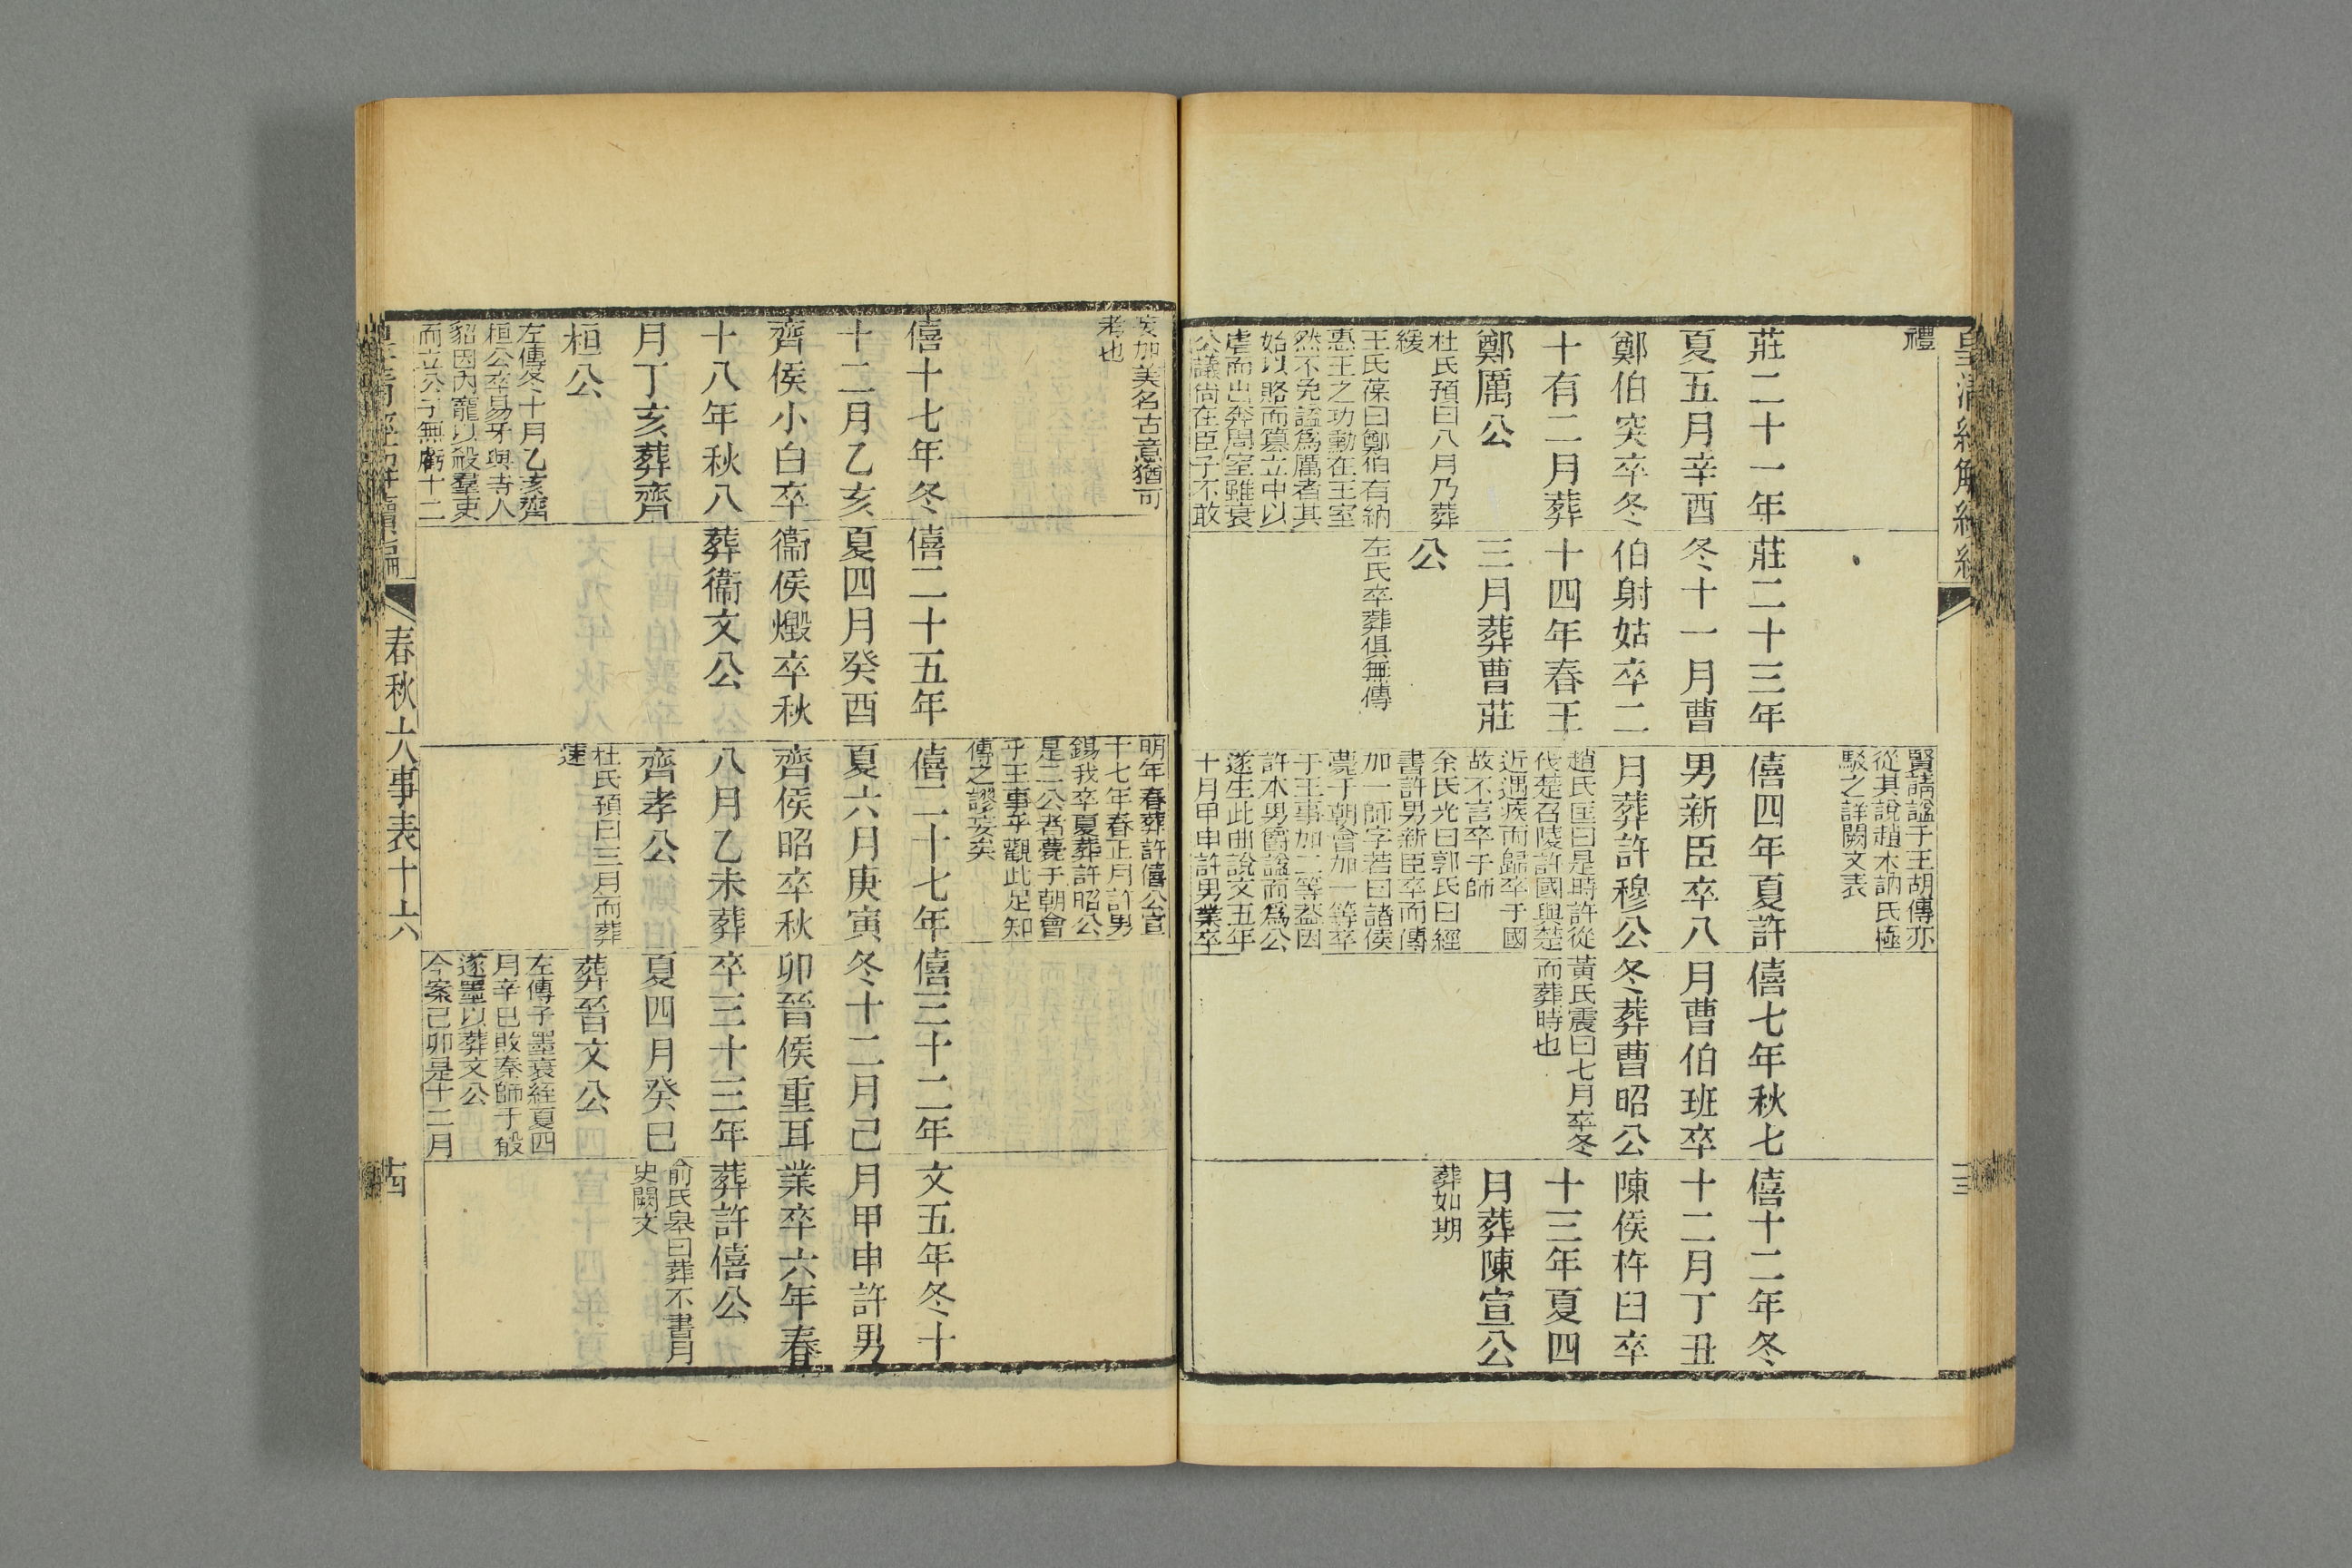 禮
莊二十一年
夏五月辛酉
鄭伯突卒冬
十有二月葬
鄭厲公
杜氏預曰八月乃葬
緩
王氏葆曰鄭伯有納
惠王之功勳在王室
然不免謚爲厲者其
始以賂而簒立中以
虐而出奔周室雖衰
公議尚在臣子不敢
莊二十三年
冬十一月曹
伯射姑卒二
十四年春王
三月葬曹莊
公
左氏卒葬俱無傳
賢請謚于王胡傳亦
從其說趙木訥氏極
駁之詳闕文表
僖四年夏許
男新臣卒八
月葬許穆公
趙氏匡曰是時許從
伐楚召陵許國與楚
近遇疾而歸卒于國
故不言卒于師
余氏光曰郭氏曰經
書許男新臣卒而傳
加一師字若曰諸侯
薨于朝會加一等卒
于王事加二等葢因
許本男爵謚而爲公
遂生此曲說文五年
十月甲申許男業卒
僖七年秋七
月曹伯班卒
冬葬曹昭公
黃氏震曰七月卒冬
而葬時也
僖十二年冬
十二月丁丑
陳侯杵臼卒
十三年夏四
月葬陳宣公
葬如期
妄加美名古意猶可
考也
僖十七年冬
十二月乙亥
齊侯小白卒
十八年秋八
月丁亥葬齊
桓公
左傳冬十月乙亥齊
桓公卒易牙與寺人
貂因內寵以殺羣吏
而立公子無虧十二
僖二十五年
夏四月癸酉
衞侯燬卒秋
葬衞文公
明年春葬許僖公宣
十七年春正月許男
錫我卒夏葬許昭公
是二公者薨于朝會
乎王事乎觀此足知
傳之謬妄矣
僖二十七年
夏六月庚寅
齊侯昭卒秋
八月乙未葬
齊孝公
杜氏預曰三月而葬
速
僖三十二年
冬十二月己
卯晉侯重耳
卒三十三年
夏四月癸巳
葬晉文公
左傳子墨衰絰夏四
月辛巳敗秦師于殽
遂墨以葬文公
今案己卯是十二月
文五年冬十
月甲申許男
業卒六年春
葬許僖公
俞氏皋曰葬不書月
史闕文
春秋大事表十六
十四